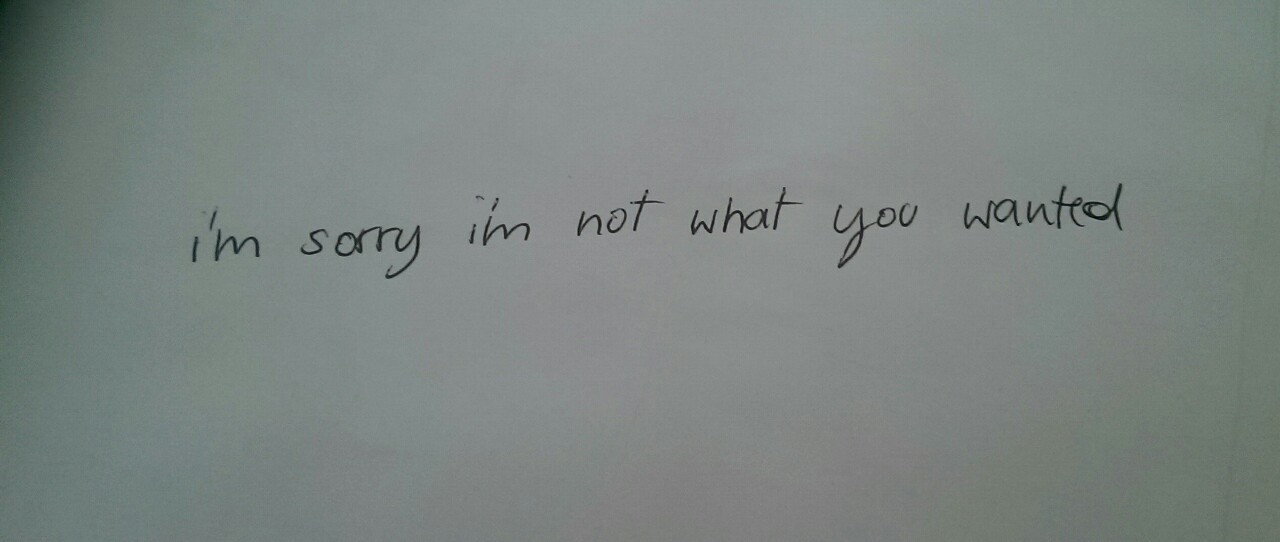 i'm sorry i'm not what you wanted